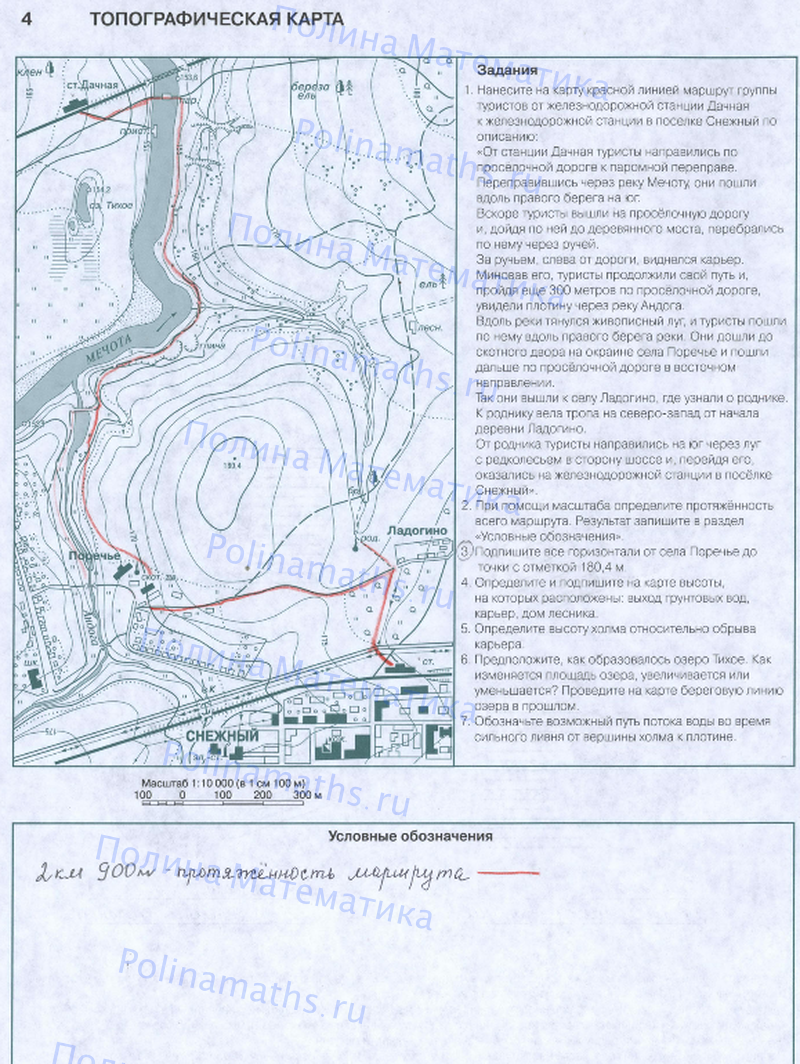 4 ТОПОГРАФИЧЕСКАЯ КАРТА
клен
ст. Дачная
153,6
пар.
береза
ель
прист.
134,2
оз. Тихое
ель
лесн.
МЕЧОТА
глина
180,4
род.
Ладогино
Поречье
скот.
Андога
шк.
ст.
СНЕЖНЫЙ
175
Задания
1. Нанесите на карту красной линией маршрут группы
туристов от железнодорожной станции Дачная
к железнодорожной станции в поселке Снежный по
описанию:
«От станции Дачная туристы направились по
просёлочной дороге к паромной переправе.
Переправившись через реку Мечоту, они пошли
вдоль правого берега на юг.
Вскоре туристы вышли на просёлочную дорогу
и, дойдя по ней до деревянного моста, перебрались
по нему через ручей.
За ручьем, слева от дороги, виднелся карьер.
Миновав его, туристы продолжили свой путь и,
пройдя еще 300 метров по просёлочной дороге,
увидели плотину через реку Андога.
Вдоль реки тянулся живописный луг, и туристы пошли
по нему вдоль правого берега реки. Они дошли до
скотного двора на окраине села Поречье и пошли
дальше по просёлочной дороге в восточном
направлении.
Так они вышли к селу Ладогино, где узнали о роднике.
К роднику вела тропа на северо-запад от начала
деревни Ладогино.
От родника туристы направились на юг через луг
с редколесьем в сторону шоссе и, перейдя его,
оказались на железнодорожной станции в посёлке
Снежный».
2. При помощи масштаба определите протяжённость
всего маршрута. Результат запишите в раздел
«Условные обозначения».
3. Подпишите все горизонтали от села Поречье до
точки с отметкой 180,4 м.
4. Определите и подпишите на карте высоты,
на которых расположены: выход грунтовых вод,
карьер, дом лесника.
5. Определите высоту холма относительно обрыва
карьера.
6. Предположите, как образовалось озеро Тихое. Как
изменяется площадь озера, увеличивается или
уменьшается? Проведите на карте береговую линию
озера в прошлом.
7. Обозначьте возможный путь потока воды во время
сильного ливня от вершины холма к плотине.
Масштаб 1:10 000 (в 1 см 100 м)
100 0 100 200 300 м
Условные обозначения
2 км 900 м - протяжённость маршрута
Полина Математика
Polinamaths.ru
Полина Математика
Polinamaths.ru
Полина Математика
Polinamaths.ru
Полина Математика
Polinamaths.ru
Полина Математика
Polinamaths.ru